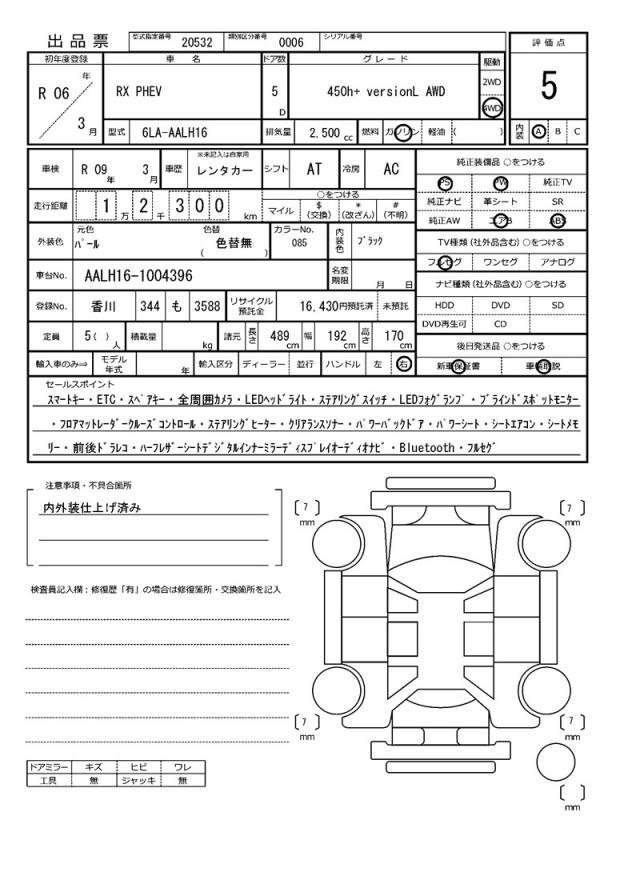 出品票 型式指定番号 20532 類別区分番号 0006 シリアル番号
評価点
5
内装 A B C
初年度登録 車名 ドア数 グレード 駆動
R 06 年 3 月 RX PHEV 5 D 450h+ versionL AWD 2WD 4WD
型式 6LA-AALH16 排気量 2,500 cc 燃料 ガソリン 軽油 ( )
車検 R 09 年 3 月 車歴 ※未記入は自家用 レンタカー シフト AT 冷房 AC
走行距離 1 万 2 千 3 0 0 km ○をつける マイル $(交換) *(改ざん) #(不明)
外装色 元色 パール 色替 色替無 ( ) カラーNo. 085 内装色 ブラック
車台No. AALH16-1004396 名変期限 月 日
登録No. 香川 344 も 3588 リサイクル預託金 16,430円預託済 未預託
定員 5 ( ) 人 積載量 kg 諸元 長さ 489 cm 幅 192 cm 高さ 170 cm
輸入車のみ⇒ モデル年式 年 輸入区分 ディーラー 並行 ハンドル 左 右
純正装備品 ○をつける
PS PW 純正TV
純正ナビ 革シート SR
純正AW エアB ABS
TV種類 (社外品含む) ○をつける
フルセグ ワンセグ アナログ
ナビ種類 (社外品含む) ○をつける
HDD DVD SD
DVD再生可 CD
後日発送品 ○をつける
新車保証書 車輌取説
セールスポイント
スマートキー・ETC・スペアキー・全周囲カメラ・LEDヘッドライト・ステアリングスイッチ・LEDフォグランプ・ブラインドスポットモニター
・フロアマットレーダークルーズコントロール・ステアリングヒーター・クリアランスソナー・パワーバックドア・パワーシート・シートエアコン・シートメモ
リー・前後ドラレコ・ハーフレザーシートデジタルインナーミラーディスプレイオーディオナビ・Bluetooth・フルセグ
注意事項・不具合箇所
内外装仕上げ済み
検査員記入欄：修復歴「有」の場合は修復箇所・交換箇所を記入
ドアミラー キズ ヒビ ワレ
工具 無 ジャッキ 無
[ 7 ] mm [ 7 ] mm
[ 7 ] mm [ 7 ] mm
[ ] mm